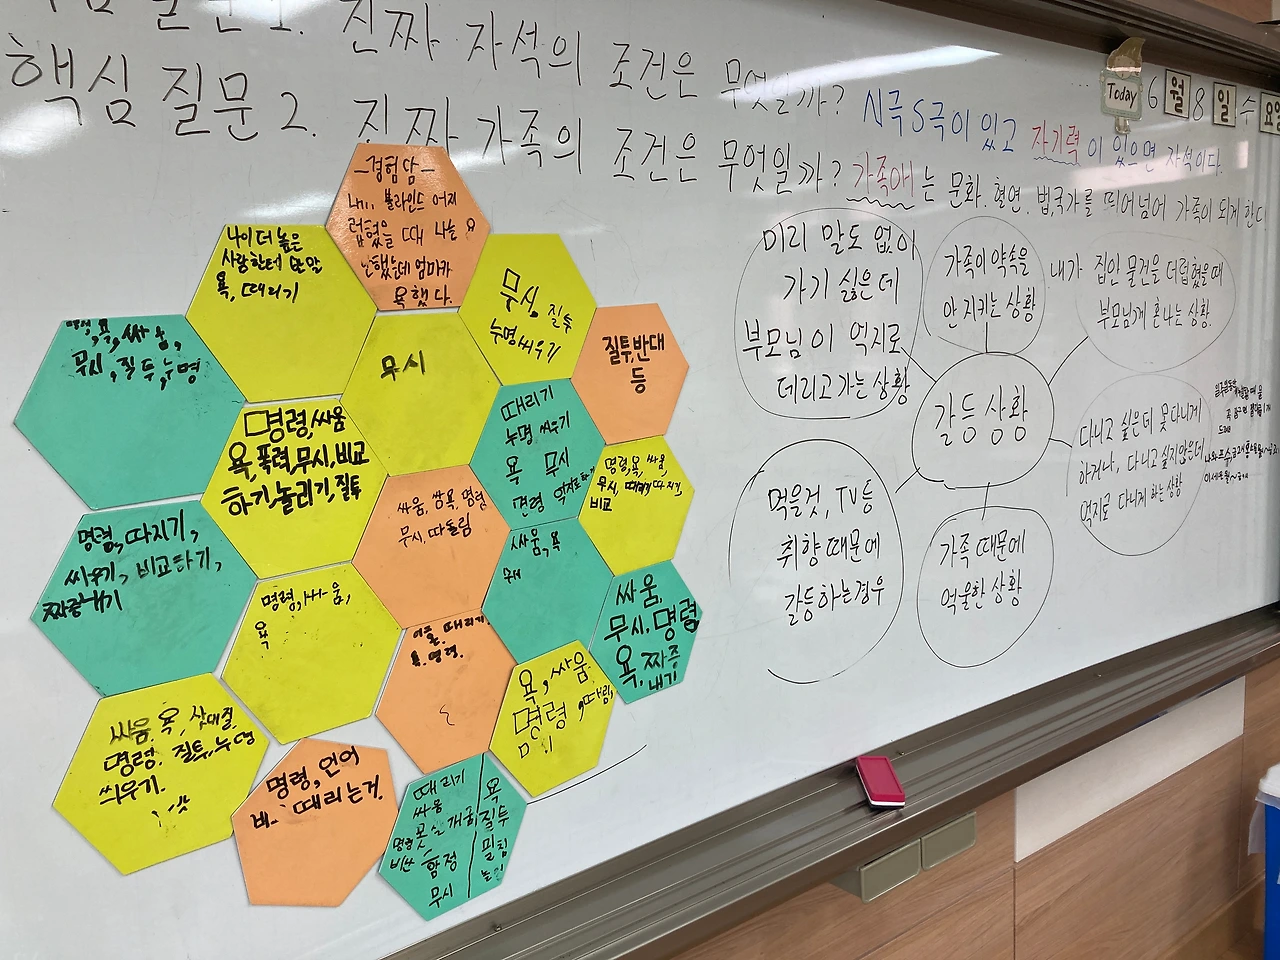 질문 1. 진짜 자석의 조건은 무엇일까? N극 S극이 있고 자기력이 있으면 자석이다.
핵심 질문 2. 진짜 가족의 조건은 무엇일까? 가족애는 문화. 혈연. 법, 국가를 뛰어넘어 가족이 되게 한다.
Today 6 월 8 일 수 요일
-경험담-
블라인드 어지
럽혔을 때 나는
안했는데 엄마가
욕했다.
나이 더 높은
사람한테 반말
욕, 때리기
무시, 질투
누명씌우기
질투, 반대
등
욕, 싸움,
무시, 질투, 누명
무시
명령, 싸움
욕, 폭력, 무시, 비교
하기, 놀리기, 질투
때리기
누명 씌우기
욕 무시
명령
명령, 욕, 싸움,
무시, 때리기, 따지기,
비교
명령, 따지기,
싸우기, 비교하기,
짜증내기
싸움, 쌍욕, 명령
무시, 따돌림
싸움, 욕
명령, 싸움,
욕
때리기
욕. 명령.
싸움,
무시, 명령
욕, 짜증
내기
욕, 싸움,
명령, 따짐,
싸움. 욕, 삿대질.
명령. 질투, 누명
씌우기.
명령, 언어
때리는거.
때리기
싸움
명령
함정
무시
욕
질투
밀침
갈등 상황
미리 말도 없이
가기 싫은데
부모님이 억지로
데리고 가는 상황
가족이 약속을
안 지키는 상황
내가 집안 물건을 더럽혔을 때
부모님께 혼나는 상황.
다니고 싶은데 못 다니게
하거나, 다니고 싶지 않은데
억지로 다니게 하는 상황
먹을것, TV 등
취향 때문에
갈등하는 경우
가족 때문에
억울한 상황